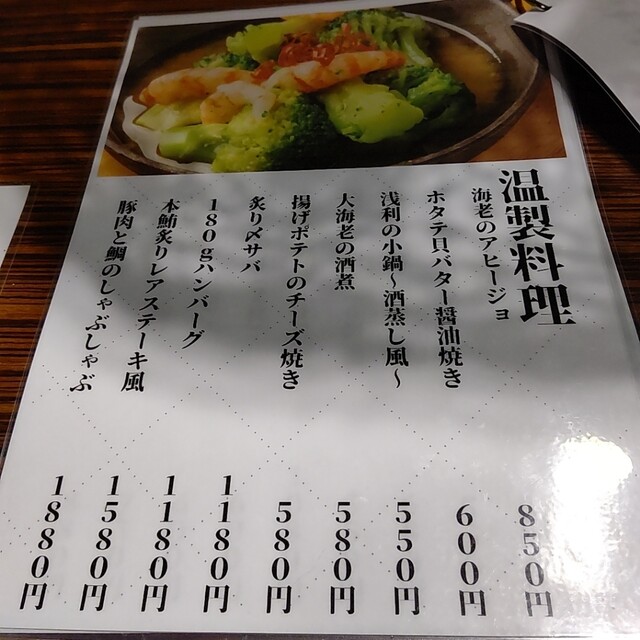 温製料理
海老のアヒージョ 850円
ホタテ貝バター醤油焼き 600円
浅利の小鍋~酒蒸し風~ 550円
大海老の酒煮 580円
揚げポテトのチーズ焼き 580円
炙り〆サバ 1180円
180gハンバーグ 1180円
本鮪炙りレアステーキ風 1580円
豚肉と鯛のしゃぶしゃぶ 1880円